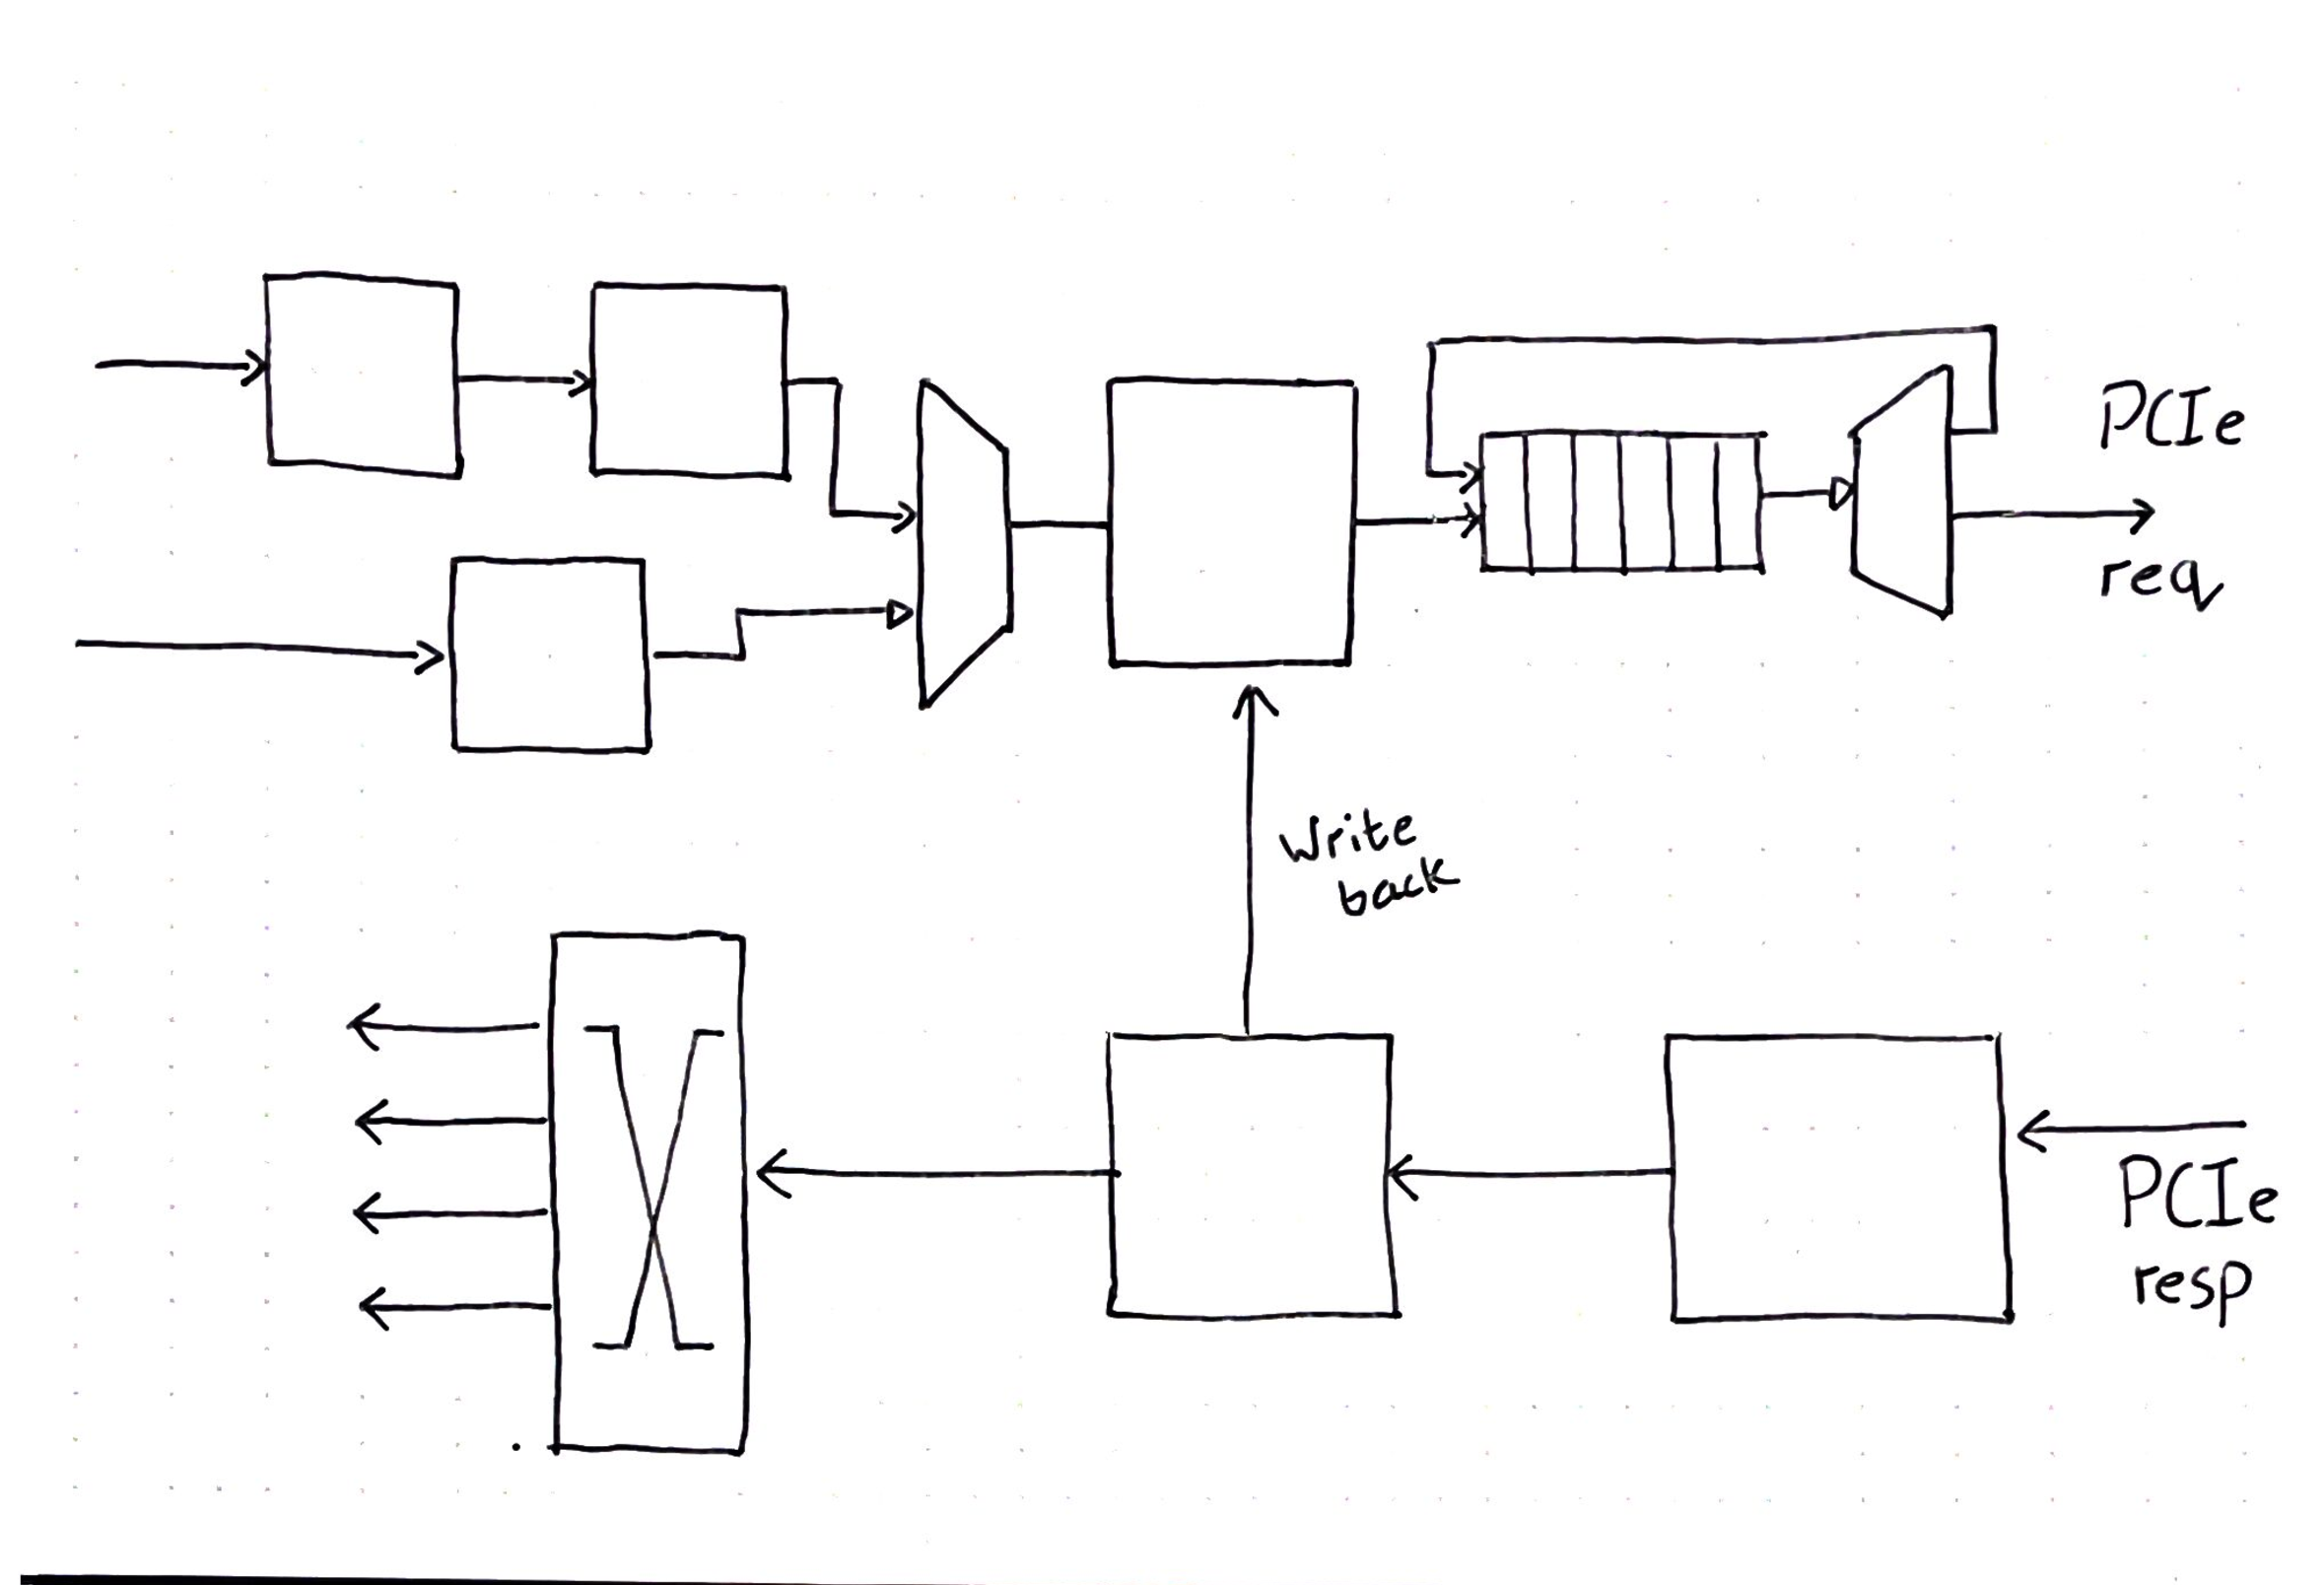 PCIe
req
Write
back
PCIe
resp